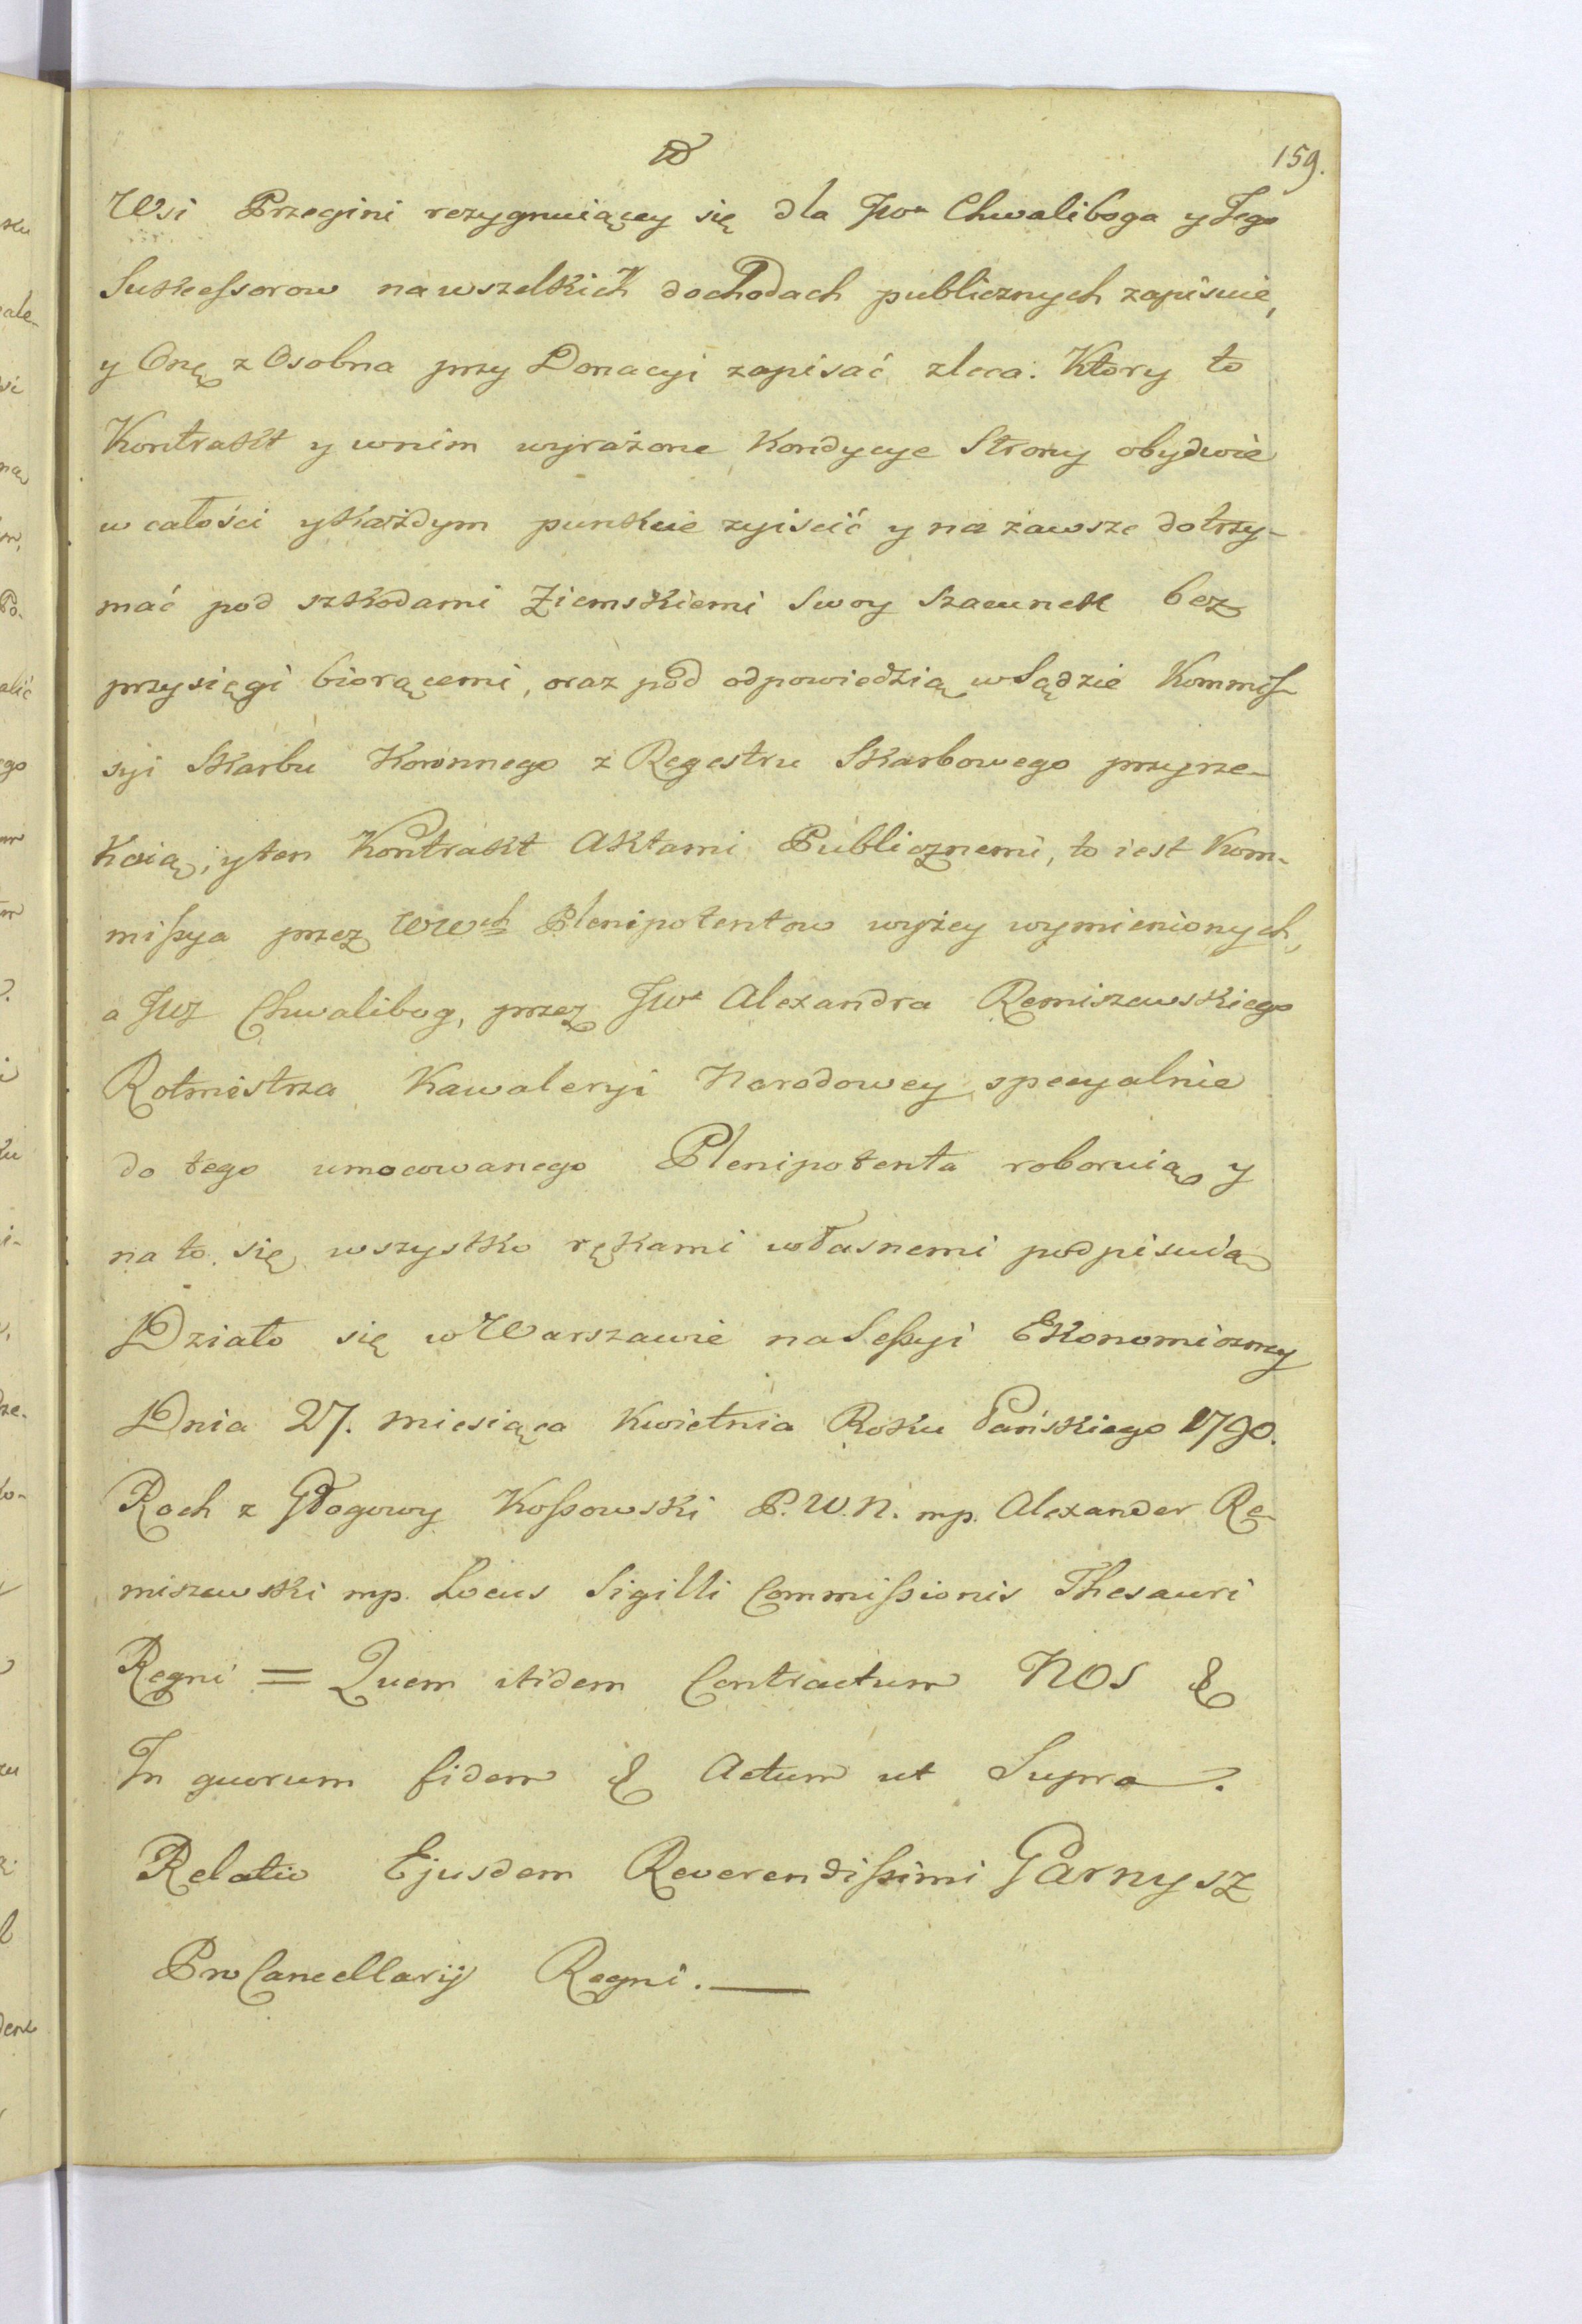 159.
Wsi Przegini rezygnuiącey się dla JWo Chwaliboga y Jego
Sukcessorow na wszelkich dochodach publicznych zapisuie,
y Onę z Osobna przy Donacyi zapisać zleca. Ktory to
Kontrakt y w nim wyrażone Kondycye Strony obydwie
w całości y każdym punkcie zyiścić y na zawsze dotrzy-
mać pod szkodami Ziemskiemi swoy szacunek bez
przysięgi biorącemi, oraz pod odpowiedzią w Sądzie Kommis-
syi Skarbu Koronnego z Regestru Skarbowego przyrze-
kaią, y ten Kontrakt Aktami Publicznemi, to iest Kom-
missya przez WWch Plenipotentow wyżey wymienionych,
a JWJ Chwalibog, przez JWo Alexandra Remiszewskiego
Rotmistrza Kawaleryi Narodowey specyalnie
do tego umocowanego Plenipotenta roboruią y
na to się wszystko rękami własnemi podpisuią
Działo się w Warszawie na Sessyi Ekonomiczney
Dnia 27. miesiąca Kwietnia Roku Pańskiego 1790.
Roch z Głogowy Kossowski P.W.N. mp. Alexander Re-
miszewski mp. Locus Sigilli Commissionis Thesauri
Regni = Quem itidem Contractum NOS &
In quorum fidem & Actum ut Supra.
Relatio Ejusdem Reverendissimi Garnysz
ProCancellarij Regni. —